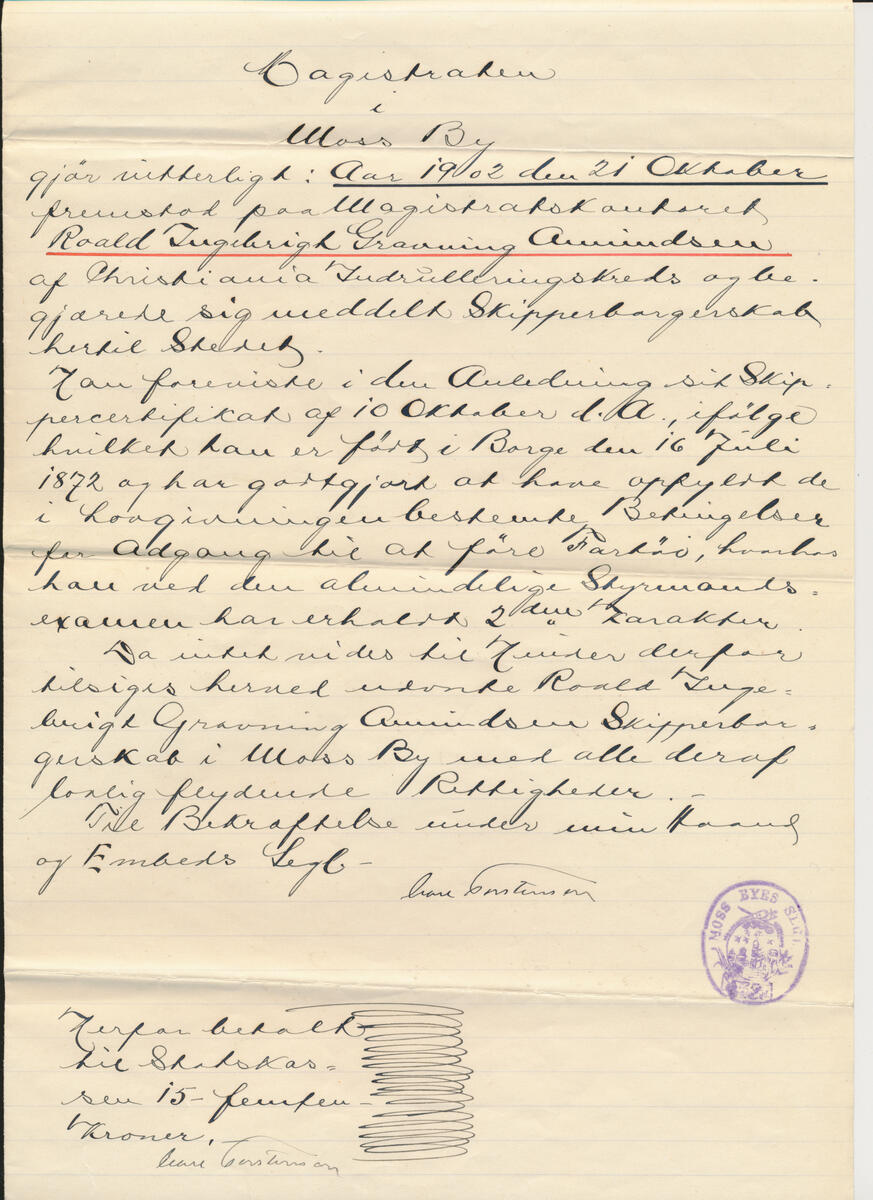 Magistraten
i
Moss By
gjör vitterligt: Aar 1902 den 21 Oktober
fremstod paa Magistratskontoret
Roald Ingebrigt Gravning Amundsen
af Christiania Indrulleringskreds og be-
gjærede sig meddelt Skipperborgerskab
hertil Stedet.
Han foreviste i den Anledning sit Skip-
percertifikat af 10 Oktober d.A., ifölge
hvilket han er födt i Borge den 16 Juli
1872 og har godtgjort at have opfyldt de
i Lovgivningen bestemte Betingelser
for Adgang til at före Fartöi, hvorhos
han ved den almindelige Styrmands=
examen har erholdt 2den Karakter.
Da intet vides til Hinder derfor
tilsiges herved udvnte Roald Inge=
brigt Gravning Amundsen Skipperbor=
gerskab i Moss By med alle deraf
lovlig flydende Rettigheder. -
Til Bekræftelse under min Haand
og Embeds Segl -
MOSS BYES SEGL
Herfor betalt
til Statskas=
sen 15 - femten -
Kroner. -